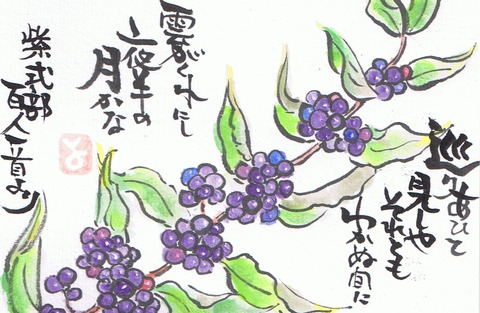 巡りあひて
見しや
それとも
わかぬ間に
雲がくれにし
夜半の
月かな
紫式部
百人一首より
と